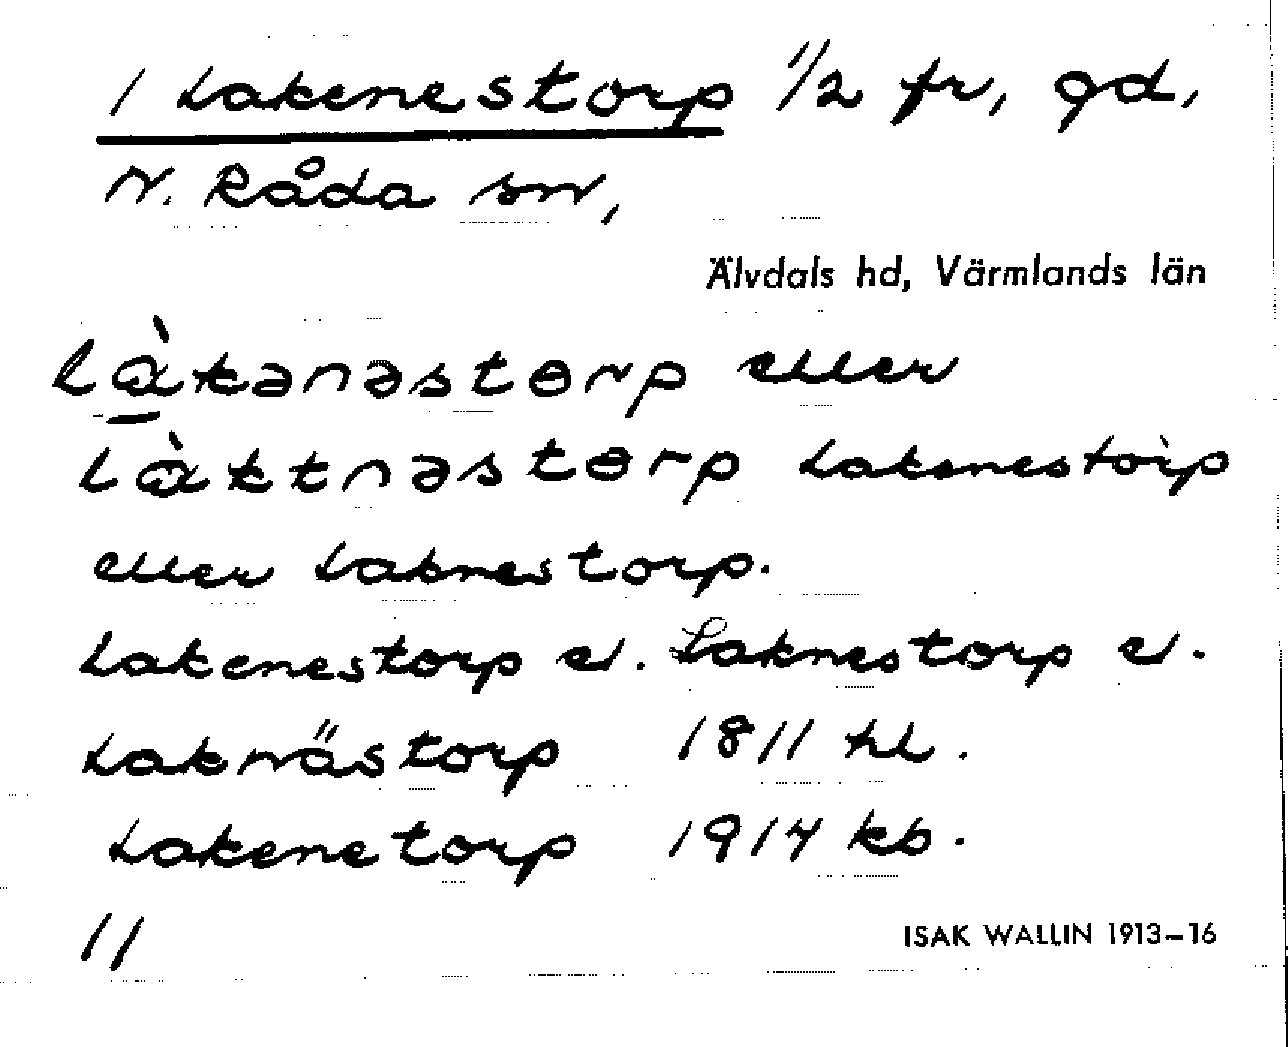 1 Lakenestorp 1/2 fr, gd,
N. Råda sn,
Älvdals hd, Värmlands län
là̱kənəstɵrp eller
làktnəstɵrp Lakenestòrp
eller Laknestorp.
Lakenestorp el. Laknestorp el.
Laknästorp 1811 hl.
Lakenetorp 1914 kb.
11
ISAK WALLIN 1913–16